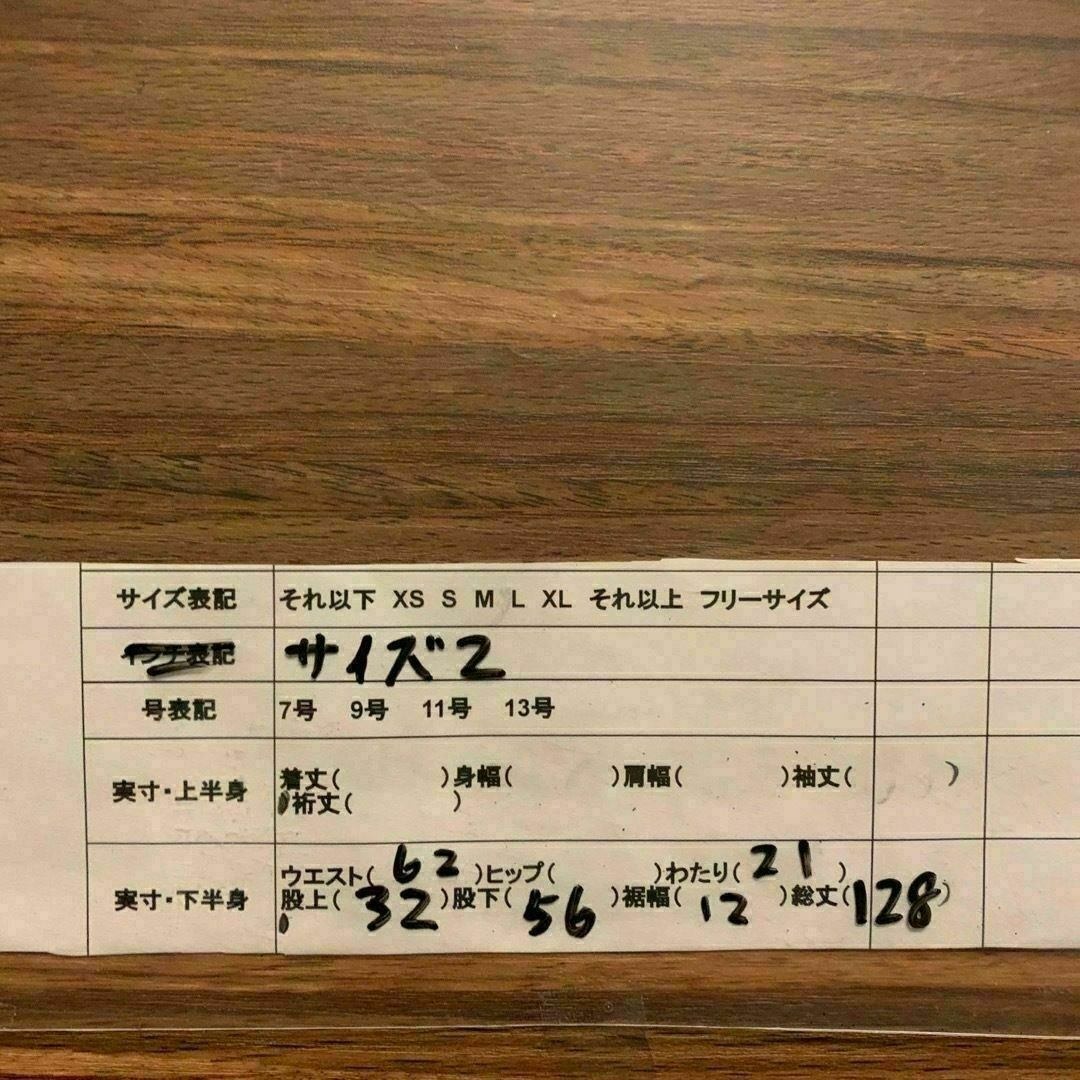 サイズ表記 それ以下 XS S M L XL それ以上 フリーサイズ
インチ表記 サイズ2
号表記 7号 9号 11号 13号
実寸・上半身 着丈( )身幅( )肩幅( )袖丈( )
裄丈( )
実寸・下半身 ウエスト( 62 )ヒップ( )わたり( 21 )
股上( 32 )股下( 56 )裾幅( 12 )総丈(128)